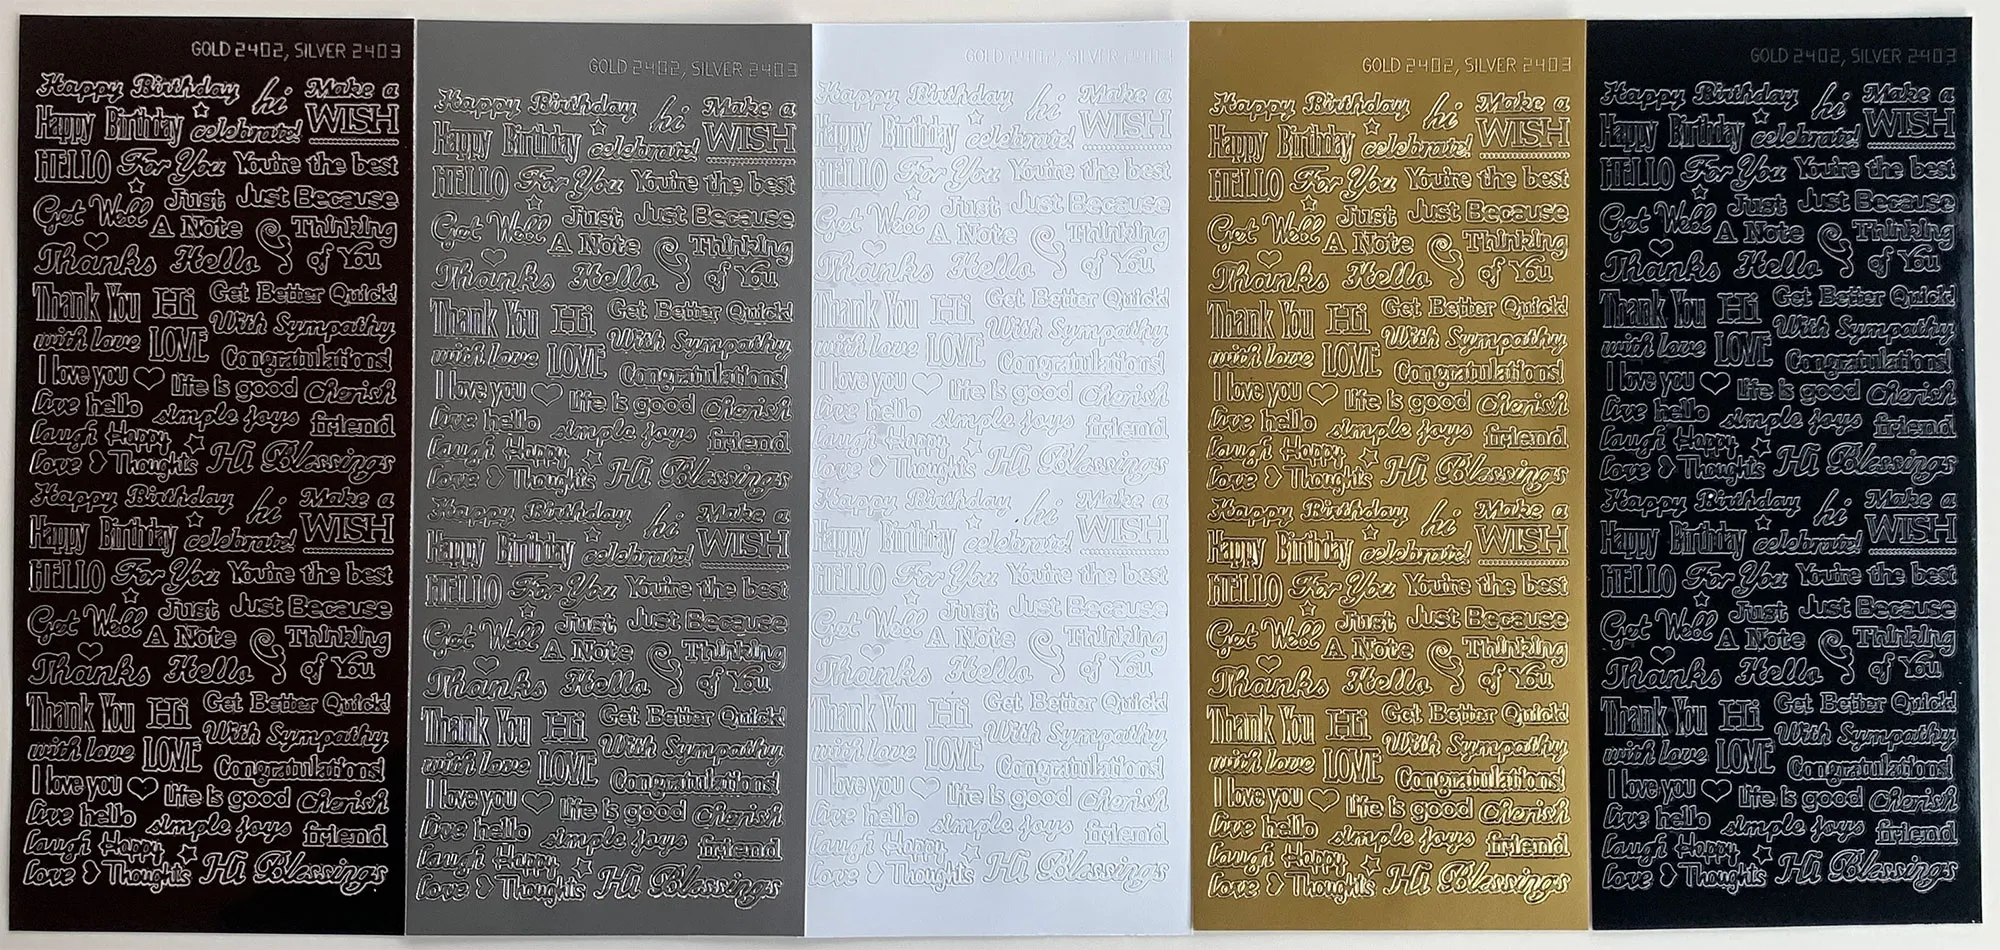 GOLD 2402, SILVER 2403
Happy Birthday hi Make a
Happy Birthday celebrate! WISH
HELLO For You You're the best
Get Well Just A Note Just Because
Thanks Hello Thinking of You
Thank You Hi Get Better Quick!
with love LOVE With Sympathy
Congratulations!
I love you life is good Cherish
live hello simple joys friend
laugh Happy
love Thoughts Hi Blessings
Happy Birthday hi Make a
Happy Birthday celebrate! WISH
HELLO For You You're the best
Get Well Just A Note Just Because
Thanks Hello Thinking of You
Thank You Hi Get Better Quick!
with love LOVE With Sympathy
Congratulations!
I love you life is good Cherish
live hello simple joys friend
laugh Happy
love Thoughts Hi Blessings
GOLD 2402, SILVER 2403
Happy Birthday hi Make a
Happy Birthday celebrate! WISH
HELLO For You You're the best
Get Well Just A Note Just Because
Thanks Hello Thinking of You
Thank You Hi Get Better Quick!
with love LOVE With Sympathy
Congratulations!
I love you life is good Cherish
live hello simple joys friend
laugh Happy
love Thoughts Hi Blessings
Happy Birthday hi Make a
Happy Birthday celebrate! WISH
HELLO For You You're the best
Get Well Just A Note Just Because
Thanks Hello Thinking of You
Thank You Hi Get Better Quick!
with love LOVE With Sympathy
Congratulations!
I love you life is good Cherish
live hello simple joys friend
laugh Happy
love Thoughts Hi Blessings
GOLD 2402, SILVER 2403
Happy Birthday hi Make a
Happy Birthday celebrate! WISH
HELLO For You You're the best
Get Well Just A Note Just Because
Thanks Hello Thinking of You
Thank You Hi Get Better Quick!
with love LOVE With Sympathy
Congratulations!
I love you life is good Cherish
live hello simple joys friend
laugh Happy
love Thoughts Hi Blessings
Happy Birthday hi Make a
Happy Birthday celebrate! WISH
HELLO For You You're the best
Get Well Just A Note Just Because
Thanks Hello Thinking of You
Thank You Hi Get Better Quick!
with love LOVE With Sympathy
Congratulations!
I love you life is good Cherish
live hello simple joys friend
laugh Happy
love Thoughts Hi Blessings
GOLD 2402, SILVER 2403
Happy Birthday hi Make a
Happy Birthday celebrate! WISH
HELLO For You You're the best
Get Well Just A Note Just Because
Thanks Hello Thinking of You
Thank You Hi Get Better Quick!
with love LOVE With Sympathy
Congratulations!
I love you life is good Cherish
live hello simple joys friend
laugh Happy
love Thoughts Hi Blessings
Happy Birthday hi Make a
Happy Birthday celebrate! WISH
HELLO For You You're the best
Get Well Just A Note Just Because
Thanks Hello Thinking of You
Thank You Hi Get Better Quick!
with love LOVE With Sympathy
Congratulations!
I love you life is good Cherish
live hello simple joys friend
laugh Happy
love Thoughts Hi Blessings
GOLD 2402, SILVER 2403
Happy Birthday hi Make a
Happy Birthday celebrate! WISH
HELLO For You You're the best
Get Well Just A Note Just Because
Thanks Hello Thinking of You
Thank You Hi Get Better Quick!
with love LOVE With Sympathy
Congratulations!
I love you life is good Cherish
live hello simple joys friend
laugh Happy
love Thoughts Hi Blessings
Happy Birthday hi Make a
Happy Birthday celebrate! WISH
HELLO For You You're the best
Get Well Just A Note Just Because
Thanks Hello Thinking of You
Thank You Hi Get Better Quick!
with love LOVE With Sympathy
Congratulations!
I love you life is good Cherish
live hello simple joys friend
laugh Happy
love Thoughts Hi Blessings